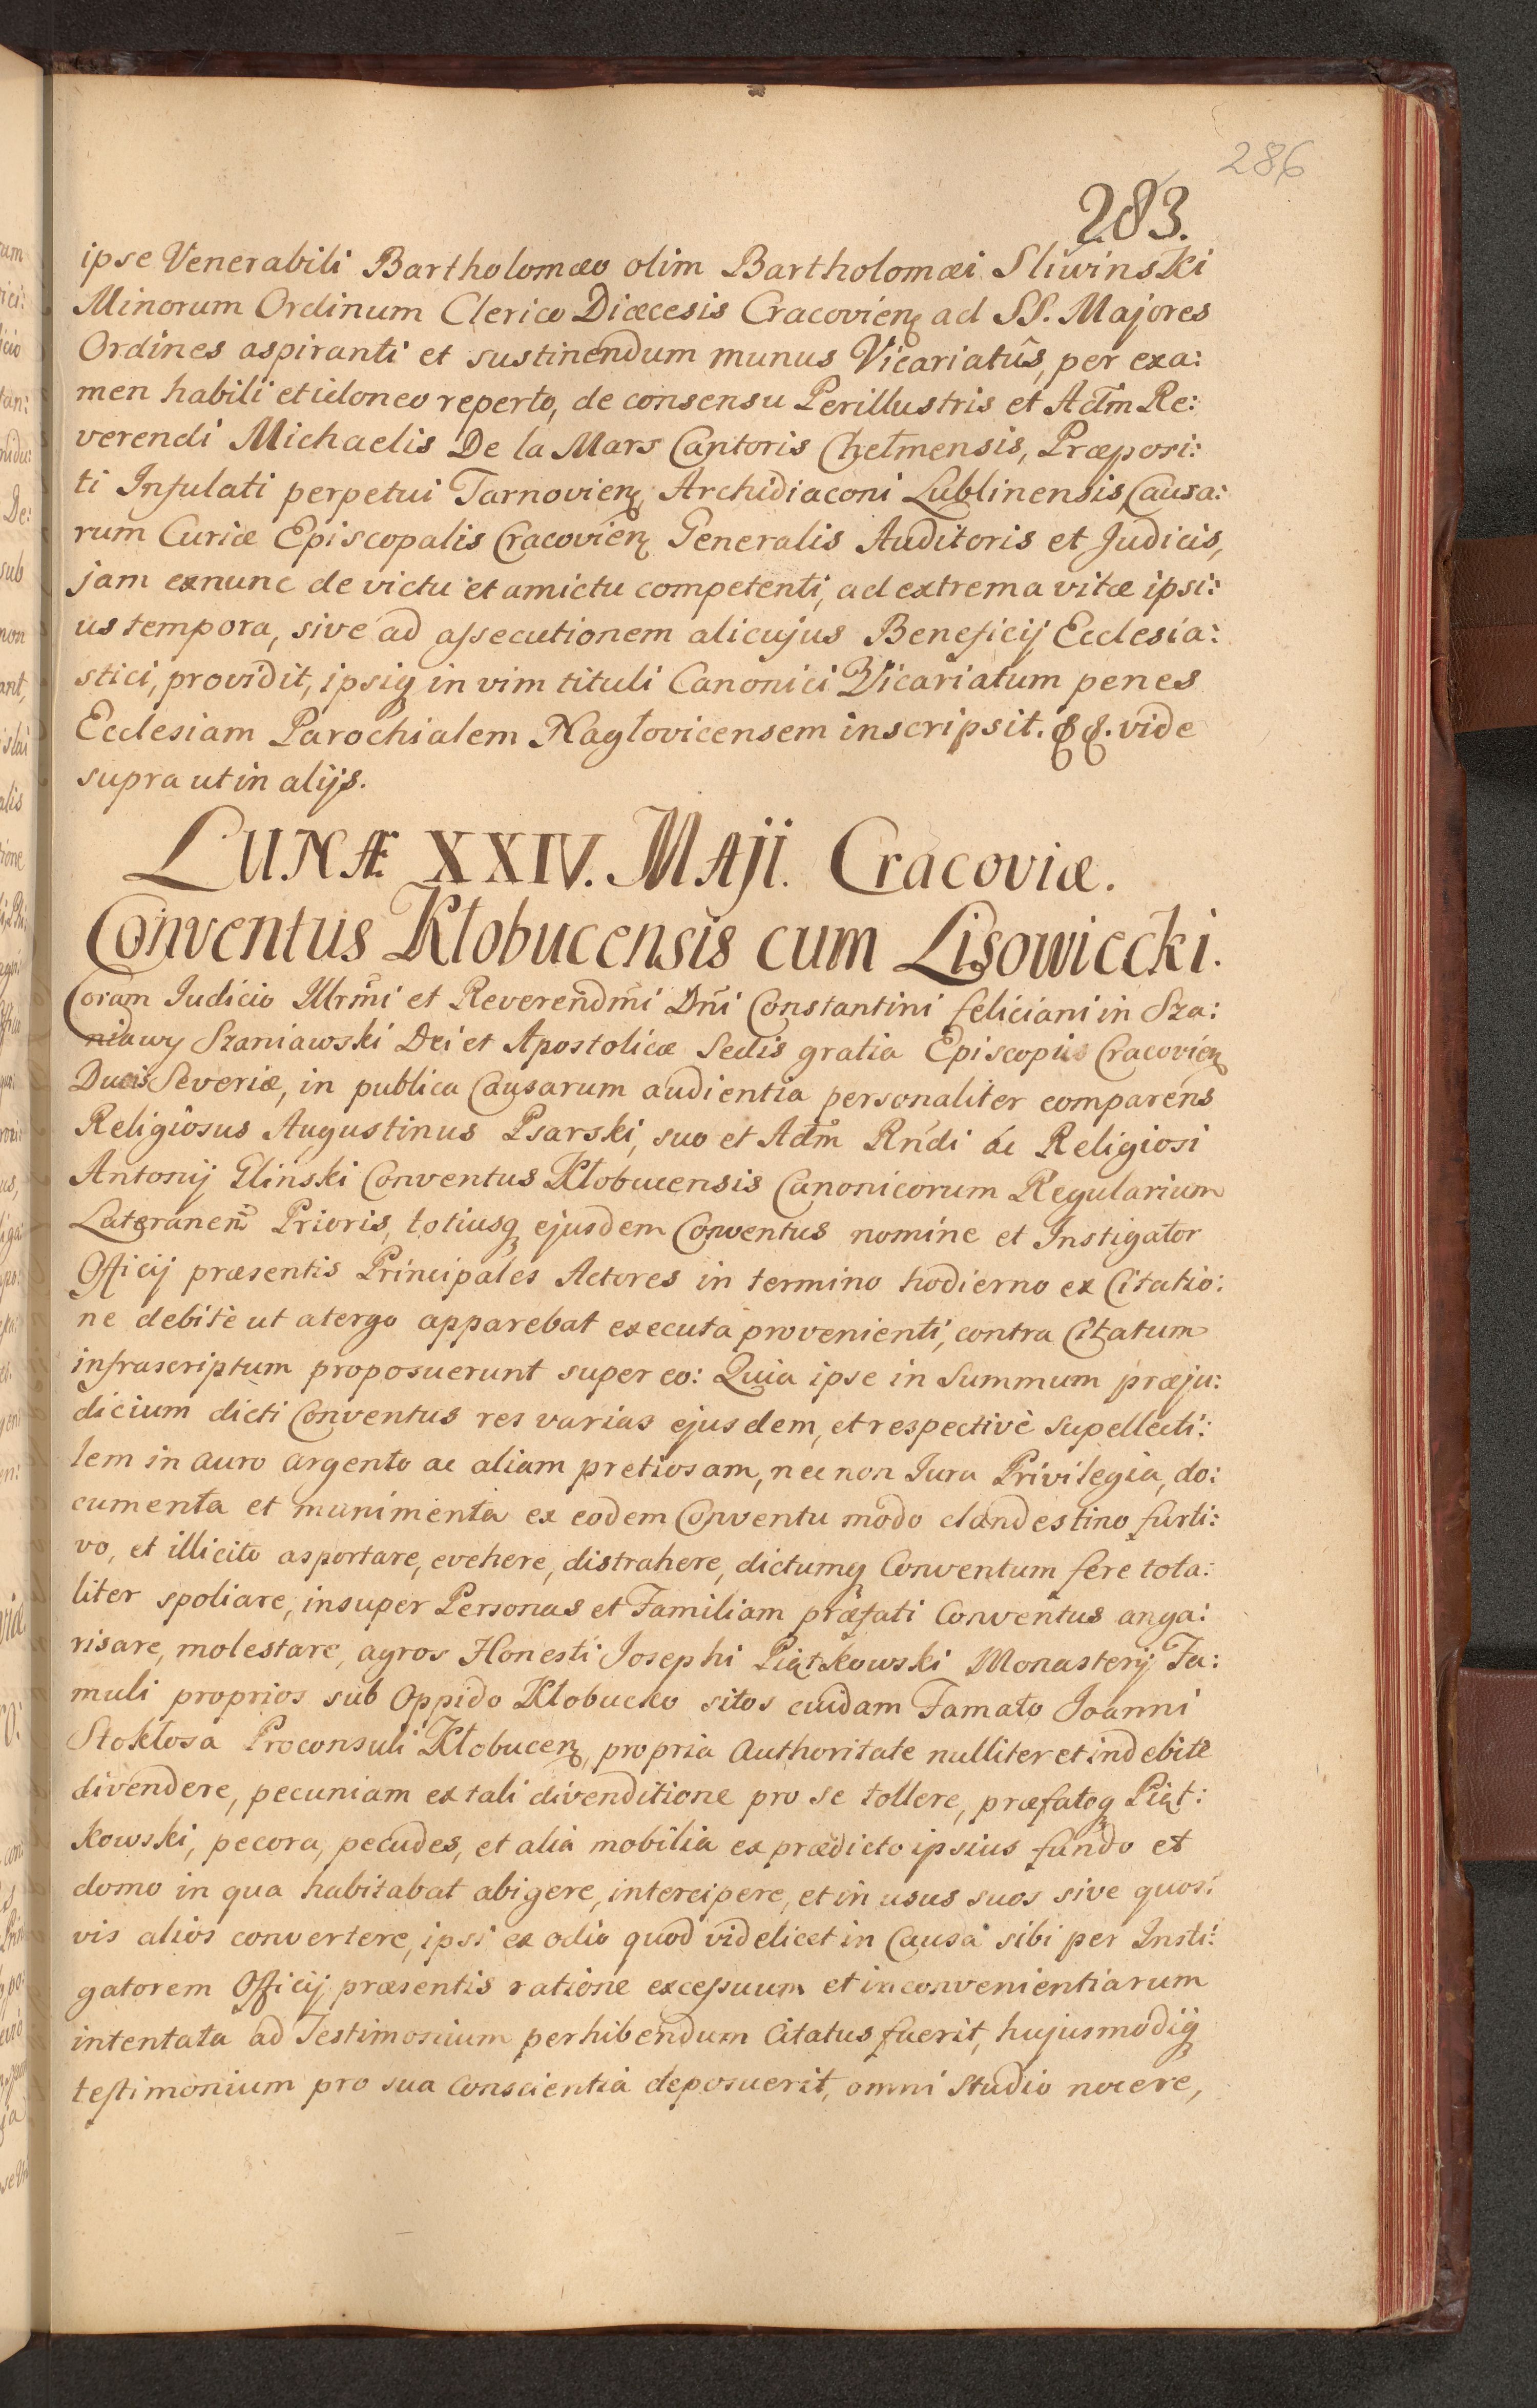 286
283.
ipse Venerabili Bartholomæo olim Bartholomæi Sliwinski
Minorum Ordinum Clerico Diæcesis Cracovienȝ ad SS. Majores
Ordines aspiranti et sustinendum munus Vicariatûs, per exa:
men habili et idoneo reperto, de consensu Perillustris et Adm̃ Re:
verendi Michaelis De la Mars Cantoris Chełmensis, Præposi:
ti Infulati perpetui Tarnovienȝ Archidiaconi Lublinensis Causa:
rum Curiæ Episcopalis Cracovienȝ Generalis Auditoris et Judicis,
jam exnunc de victu et amictu competenti, ad extrema vitæ ipsi:
us tempora, sive ad assecutionem alicujus Beneficij Ecclesia:
stici, providit, ipsiqȝ in vim tituli Canonici Vicariatum penes
Ecclesiam Parochialem Nagłovicensem inscripsit. &&. vide
supra ut in alijs.
LUNÆ XXIV. MAJI. Cracoviæ.
Conventus Kłobucensis cum Lisowiecki.
Coram Iudicio Illrm̃i et Reverendm̃i Dñi Constantini feliciani in Sza:
niawy Szaniawski Dei et Apostolicæ Sedis gratia Episcopus Cracovienȝ
Ducis Severiæ, in publica Causarum audientia personaliter comparens
Religiosus Augustinus Psarski, suo et Adm̃ Rñdi ac Religiosi
Antonij Glinski Conventus Kłobucensis Canonicorum Regularium
Lateraneñ Prioris, totiusqȝ ejusdem Conventus nomine et Instigator
Officij præsentis Principales Actores in termino hodierno ex Citatio:
ne debitè ut atergo apparebat executa provenienti, contra Citatum
infrascriptum proposuerunt super eo: Quia ipse in Summum præju:
dicium dicti Conventus res varias ejusdem, et respectivè Supellecti:
lem in auro argento ac aliam pretiosam, nec non Iura Privilegia, do:
cumenta et munimenta ex eodem Conventu modo clandestino furti:
vo, et illicito asportare, evehere, distrahere, dictumqȝ Conventum fere tota:
liter spoliare, insuper Personas et Familiam præfati Conventus anga:
risare, molestare, agros Honesti Josephi Piątkowski Monasterij Fa:
muli proprios sub Oppido Kłobucko sitos cuidam Famato Joanni
Stokłosa Proconsuli Kłobucenȝ, propria Authoritate nulliter et indebitè
divendere, pecuniam ex tali divenditione pro se tollere, præfatoqȝ Piąt:
kowski, pecora, pecudes, et alia mobilia ex prædicto ipsius fundo et
domo in qua habitabat abigere, intercipere, et in usus suos sive quos:
vis alios convertere, ipsi ex odio quod videlicet in Causa sibi per Insti:
gatorem Officij præsentis ratione excessuum et inconvenientiarum
intentata ad Testimonium perhibendum Citatus fuerit, hujusmodiqȝ
testimonium pro sua Conscientia deposuerit, omni Studio nocere,